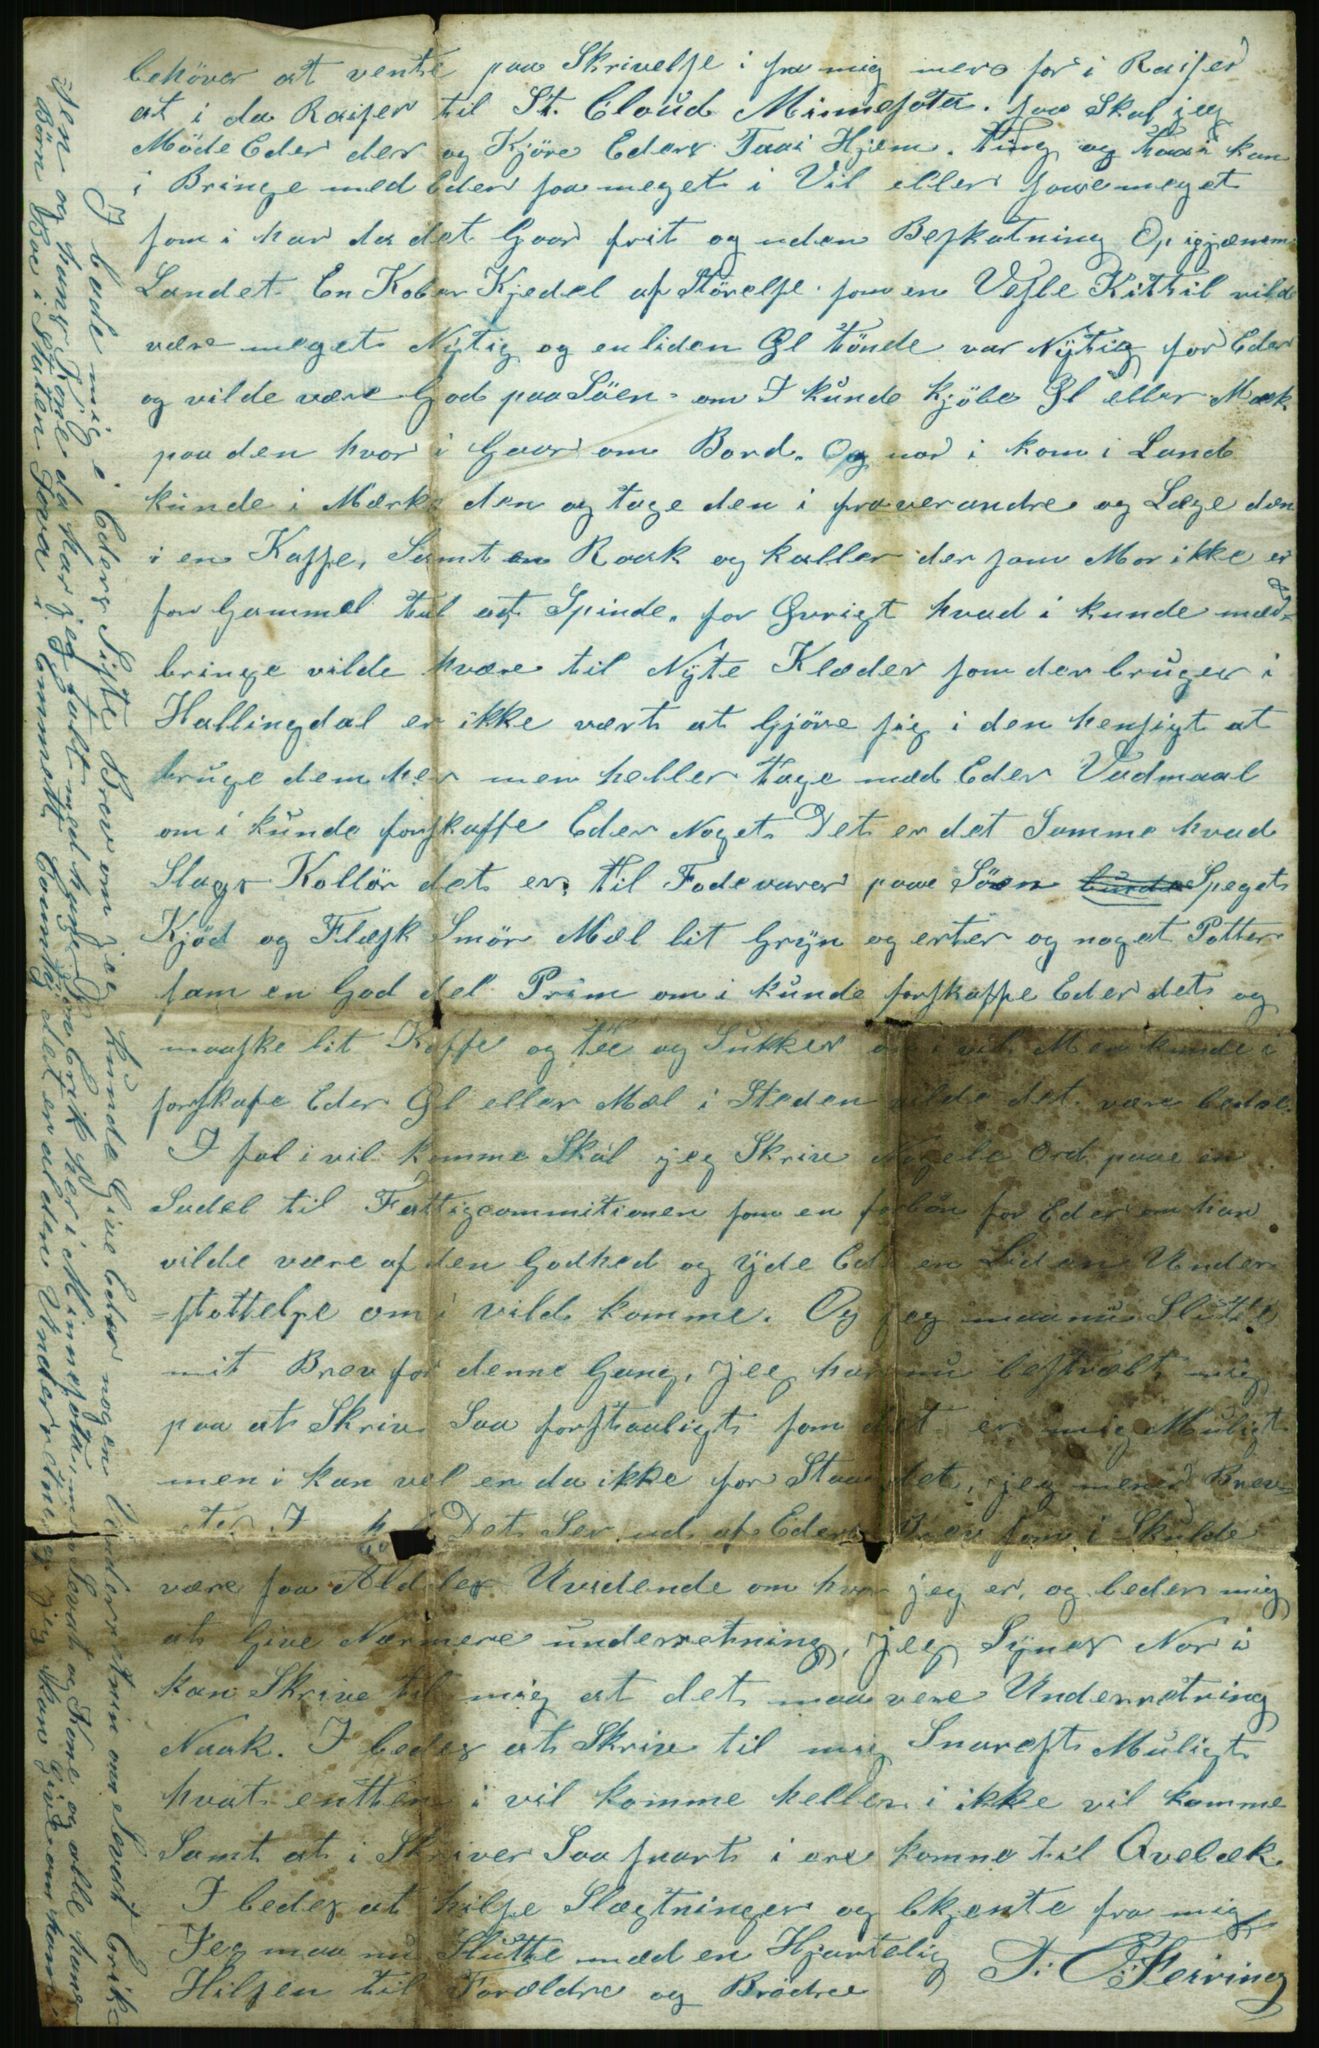 behöver at vente paa Skrivelse i fra mig mere for i Raiser
at i da Raiser til St. Cloud Minnesota. saa Skal jeg
Möde Eder der og Kjöre Eders Taai Hjem. Ting og Taai kan
i Bringe med Eder saa meget i Vil eller saavemeget
som i har da det Gaar frit og uden Beskatning Op igjænem
Landet. En Kobar Kjedel af Störelse som en Vesle Kittil vilde
være meget Nÿtig og en liden Öl tönde var Nÿtig for Eder
og vilde være God paa Söen om I kunde kjöbe Öl eller Mælk
paa den hvor i Gaar om Bord. Og nar i kom i Land
kunde i Mærke den og tage den i fraverandre og Læge den
i en Kasse, Samt en Raak og kaller der som Mor ikke er
for Gammel tel at Spinde. for Övrigt hvad i kunde mæd-
bringe vilde hvære til Nÿte Klæder som der bruges i
Hallingdal er ikke vært at Gjöre sig i den hensigt at
bruge dem her men heller tage mæd Eder Vadmaal
om i kunde forskaffe Eder Noget Det er det Samme hvad
Slags Kollör det er. til Födevarer paa Söen Speget
Kjöd og Flæsk Smör Mæl lit Grÿn og erter og noget Potter
sam en God del Prim om i kunde forskaffe Eder det og
maaske lit Kaffe og tee og Sukker om i vil Men kunde i
forskafe Eder Öl eller Mæl i Steden vilde det være bedre.
I fal i vil komme Skal jeg Skrive Nogele Ord paa en
Sadel til Fattigcommitionen som en forbön for Eder om han
vilde være af den Godhed og ÿde Eder en Liden Under-
=stottelse om i vild komme. Og jeg maa nu Slutte
mit Brev for denne Gang, jeg har nu bestræbt mig
paa at Skrive Saa forstaaligt som det er mig Muligt
men i kan vel enda ikke for Staa det, jeg mener Brev
et. I Det Ser ud af Eders Brev som i Skulde
være saa Aldeles Uvidende om hvor jeg er, og beder mig
at Give Nærmere underretning, jeg Sÿnes Nor i
kan Skrive til mig at det maa være Underretning
Naak. I bedes at Skrive til mig Snarest Muligt
hvat entten i vil komme heller i ikke vil komme
Samt at i Skriver Saa snart i ere komne til Avebæk
I bedes at hilse Slægtninger og bkjente fra mig
Jeg maa nu Slutte mæd en Hjærtelig
Hilsen til Forældre og Brödre
T. O. Ferring
I bade mig i Eders Siste Brev om jeg kunde Give Eder nogen Underretnin om Sevat Erik
sen og hans Kone da har jeg talt med hans Bror Erik her i Minnesota, men Sevat og Kone og alle hans
Börn Bor i Staten Iova i Emmett County. det er al den Underretning jeg kan Give om ham